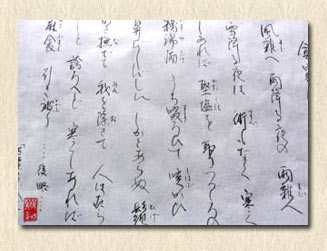 風雑へ 雨降る夜の 雨雑へ
雪降る夜は 術もなく 寒く
しあれば 堅塩を 取りつづ
糟湯酒 うち啜ろひて 咳かひ
鼻びしびしに しかとあらぬ 髭
撫でて 我を除きて 人は在ら
じと 誇ろへど 寒くしあれば
麻衾 引き被り …… 後略